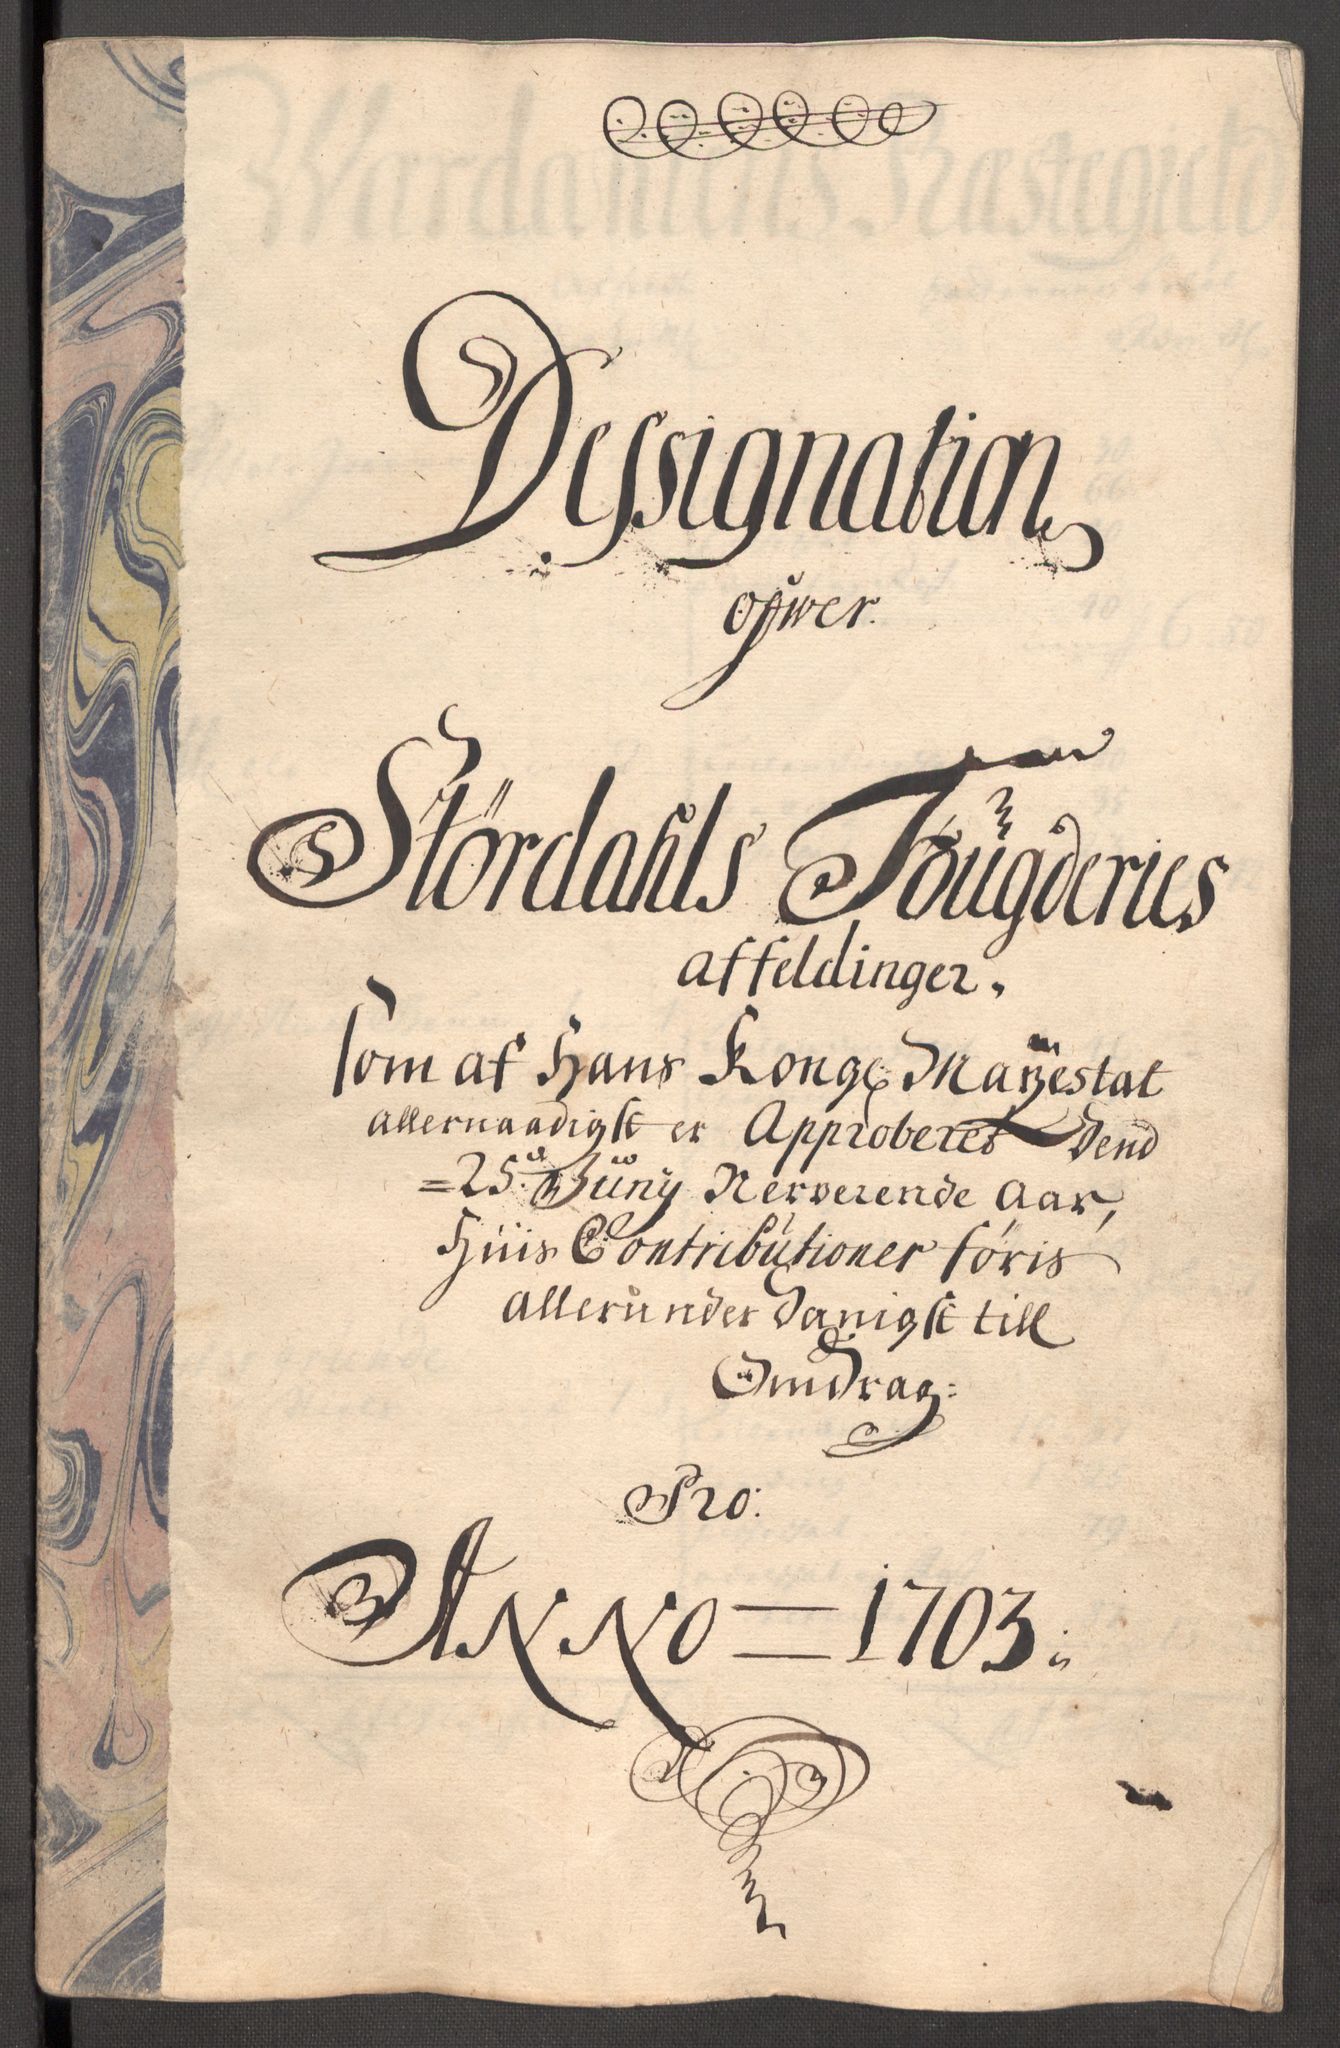 Dessignation
ofwer.
Størdahls Foügderies
affeldinger.
som af Hans Kong: Mayestat
allernaadigst er Approberet Dend
=25. Juny Nerverende Aar,
Hüis Contributioner føris
alleründerdanigst till
Omdrag:
Pro:
ANNO = 1703.